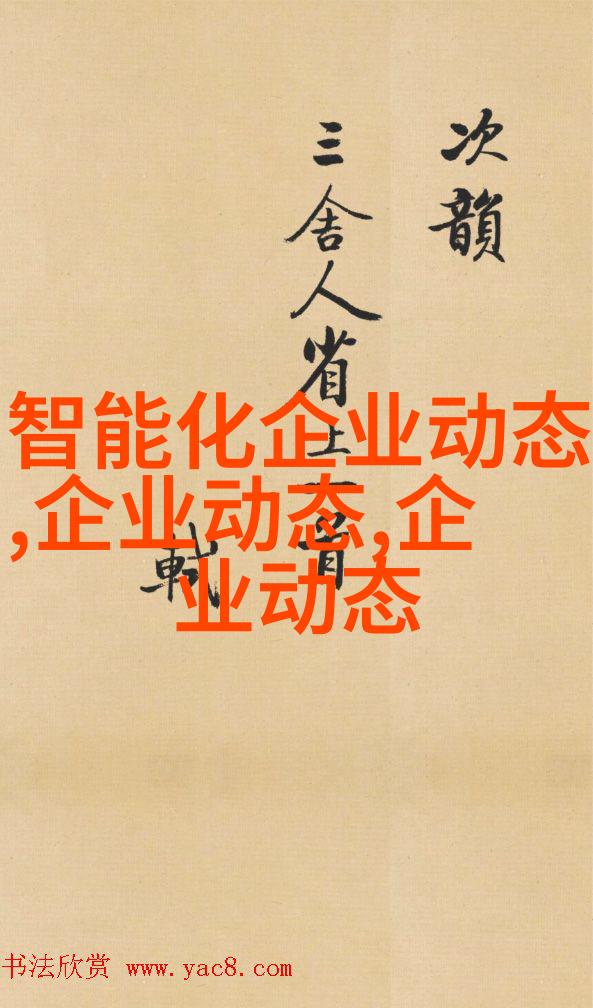 次韻
三舍人省上一首
軾
智能化企业动态
,企业动态,企
业动态
书法欣赏 www.yac8.com